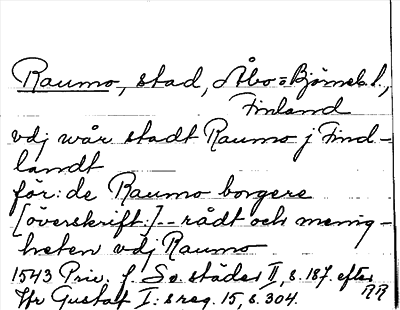 Raumo, stad, Åbo=Björneb.l.,
Finland
vdj wår stadt Raumo j Find-
landt
för: de Raumo borgere
[överskrift:]-- rådt och menig-
heten vdj Raumo
1543 Priv. f. Sv. städer II, s. 187. efter
Gustaf I: s reg. 15, s. 304. RR